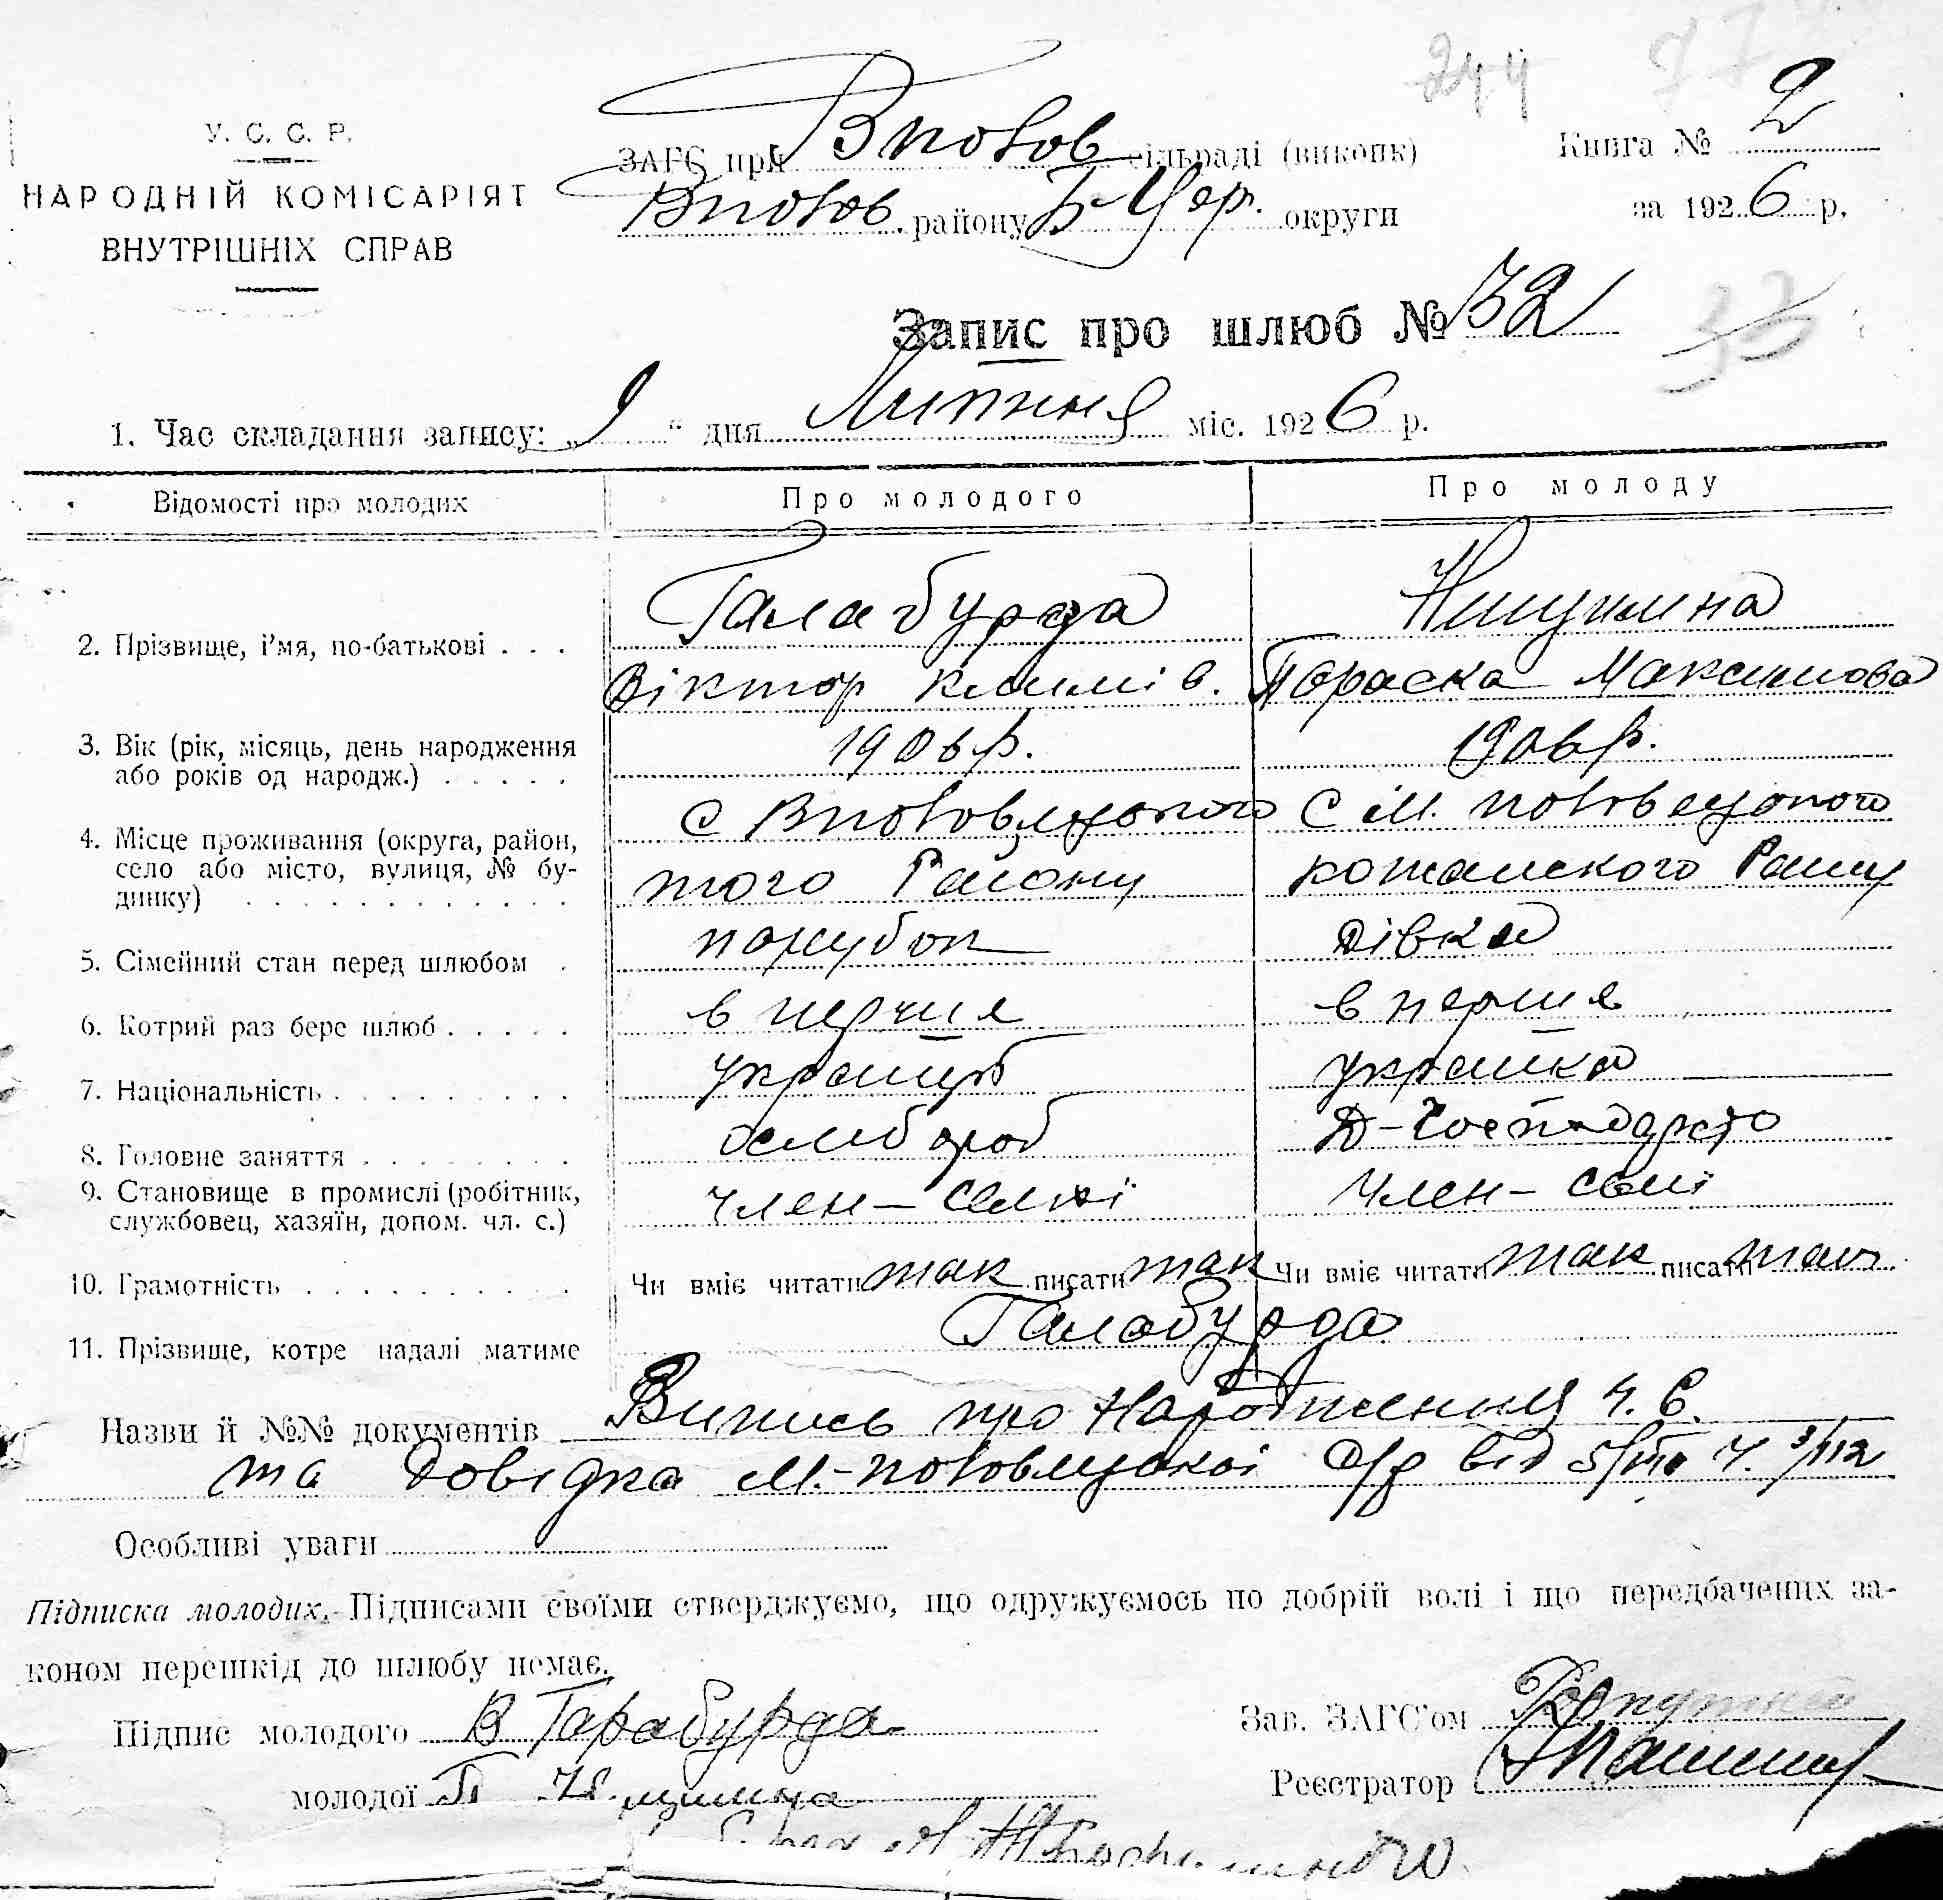 244 77
У. С. С. Р.
НАРОДНІЙ КОМІСАРІЯТ
ВНУТРІШНІХ СПРАВ
ЗАГС при Вполов сільраді (виконк)
Вполов. району Б-Цер. округи
Книга № 2
за 1926 р.
Запис про шлюб № 32
1. Час складання запису: „9“ дня Липння міс. 1926 р.
Відомості про молодих Про молодого Про молоду
2. Прізвище, і'мя, по-батькові . . . Галабурда
Віктор Климів. Параска Максимова
3. Вік (рік, місяць, день народження
або років од народж.) . . . . . 1906 р. 1906 р.
4. Місце проживання (округа, район,
село або місто, вулиця, № бу-
динку) . . . . . . . . . . . .
того Району кожанського Рану
5. Сімейний стан перед шлюбом . парубок дівка
6. Котрий раз бере шлюб . . . . . в перше в перше
7. Національність . . . . . . . . . українка
8. Головне заняття . . . . . . . . хлібороб Д-Господарство
9. Становище в промислі (робітник,
службовец, хазяїн, допом. чл. с.) член-семї член-семї
10. Грамотність . . . . . . . . . . Чи вміє читати так писати так Чи вміє читати так писати так
11. Прізвище, котре надалі матиме Галабурда
Назви й №№ документів Випись про Народження ч. 6.
та Довідка М.-половецької с/р від ч.
Особливі уваги
Підписка молодих. Підписами своїми стверджуємо, що одружуємось по добрій волі і що передбачених за-
коном перешкід до шлюбу немає.
Підпис молодого В Гарабурда
молодої П
Зав. ЗАГС'ом
Реєстратор